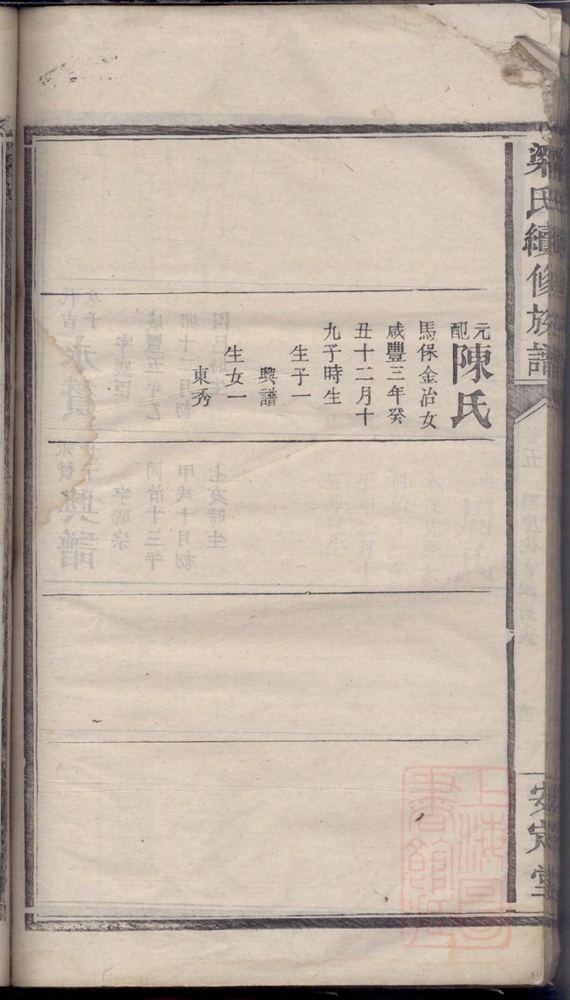 梁氏續修族譜
五
安定堂
元配陳氏
馬保金治女
咸豐三年癸
丑十二月十
九子時生
生子一
興譜
生女一
東秀
上海圖
書館藏